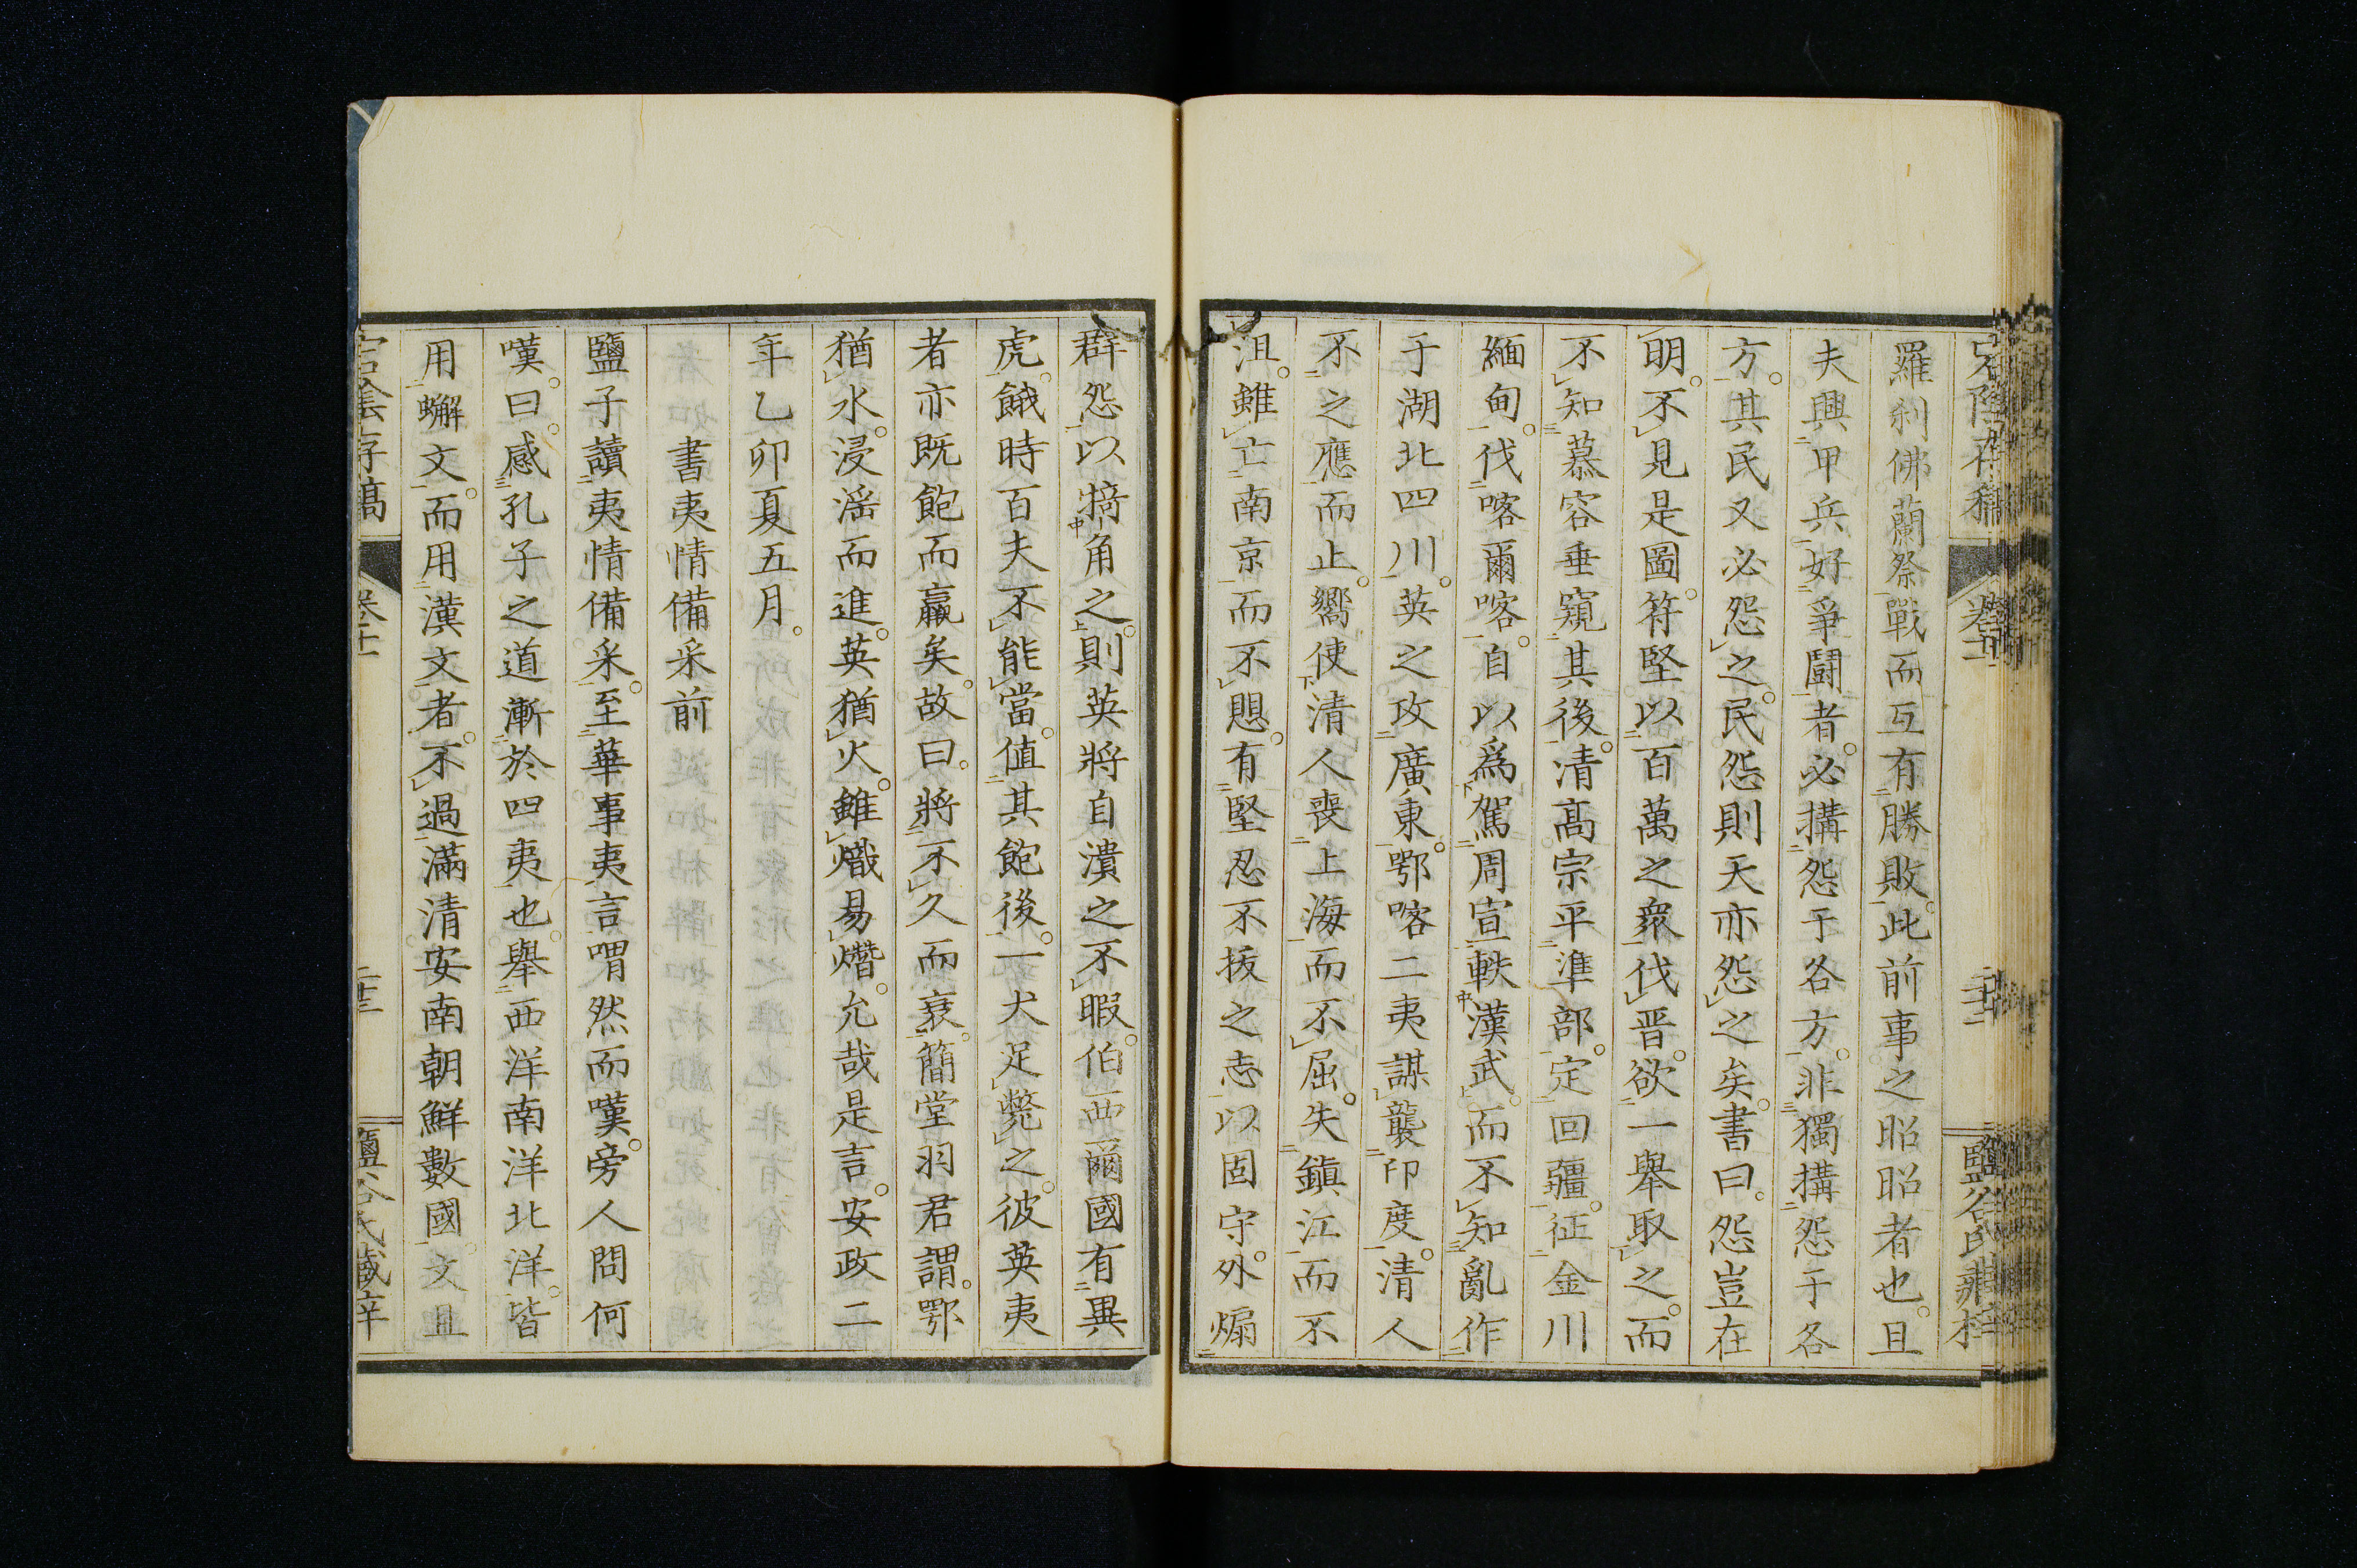 羅刹佛蘭祭戰而互有勝敗此前事之昭昭者也且
夫興甲兵好爭鬪者必搆怨于各方非獨搆怨于各
方其民又必怨之民怨則天亦怨之矣書曰怨豈在
明不見是圖符堅以百萬之衆伐晋欲一舉取之而
不知慕容垂窺其後清高宗平準部定回疆征金川
緬甸伐喀爾喀自以爲駕周宣軼漢武而不知亂作
于湖北四川英之攻廣東鄂喀二夷謀襲印度清人
不之應而止嚮使清人喪上海而不屈失鎮江而不
沮雖亡南京而不思有堅忍不拔之志以固守外煽
群怨以犄角之則英將自潰之不暇伯西爾國有異
虎餓時百夫不能當值其飽後一犬足斃之彼英夷
者亦既飽而羸矣故曰將不久而衰簡堂羽君謂鄂
猶水浸淫而進英猶火雖熾易熸允哉是言安政二
年乙卯夏五月
書夷情備采前
鹽子讀夷情備采至華事夷言喟然而嘆旁人問何
嘆曰感孔子之道漸於四夷也舉西洋南洋北洋皆
用蠏文而用漢文者不過滿清安南朝鮮數國文且
宕陰存稿
卷十一
二十三